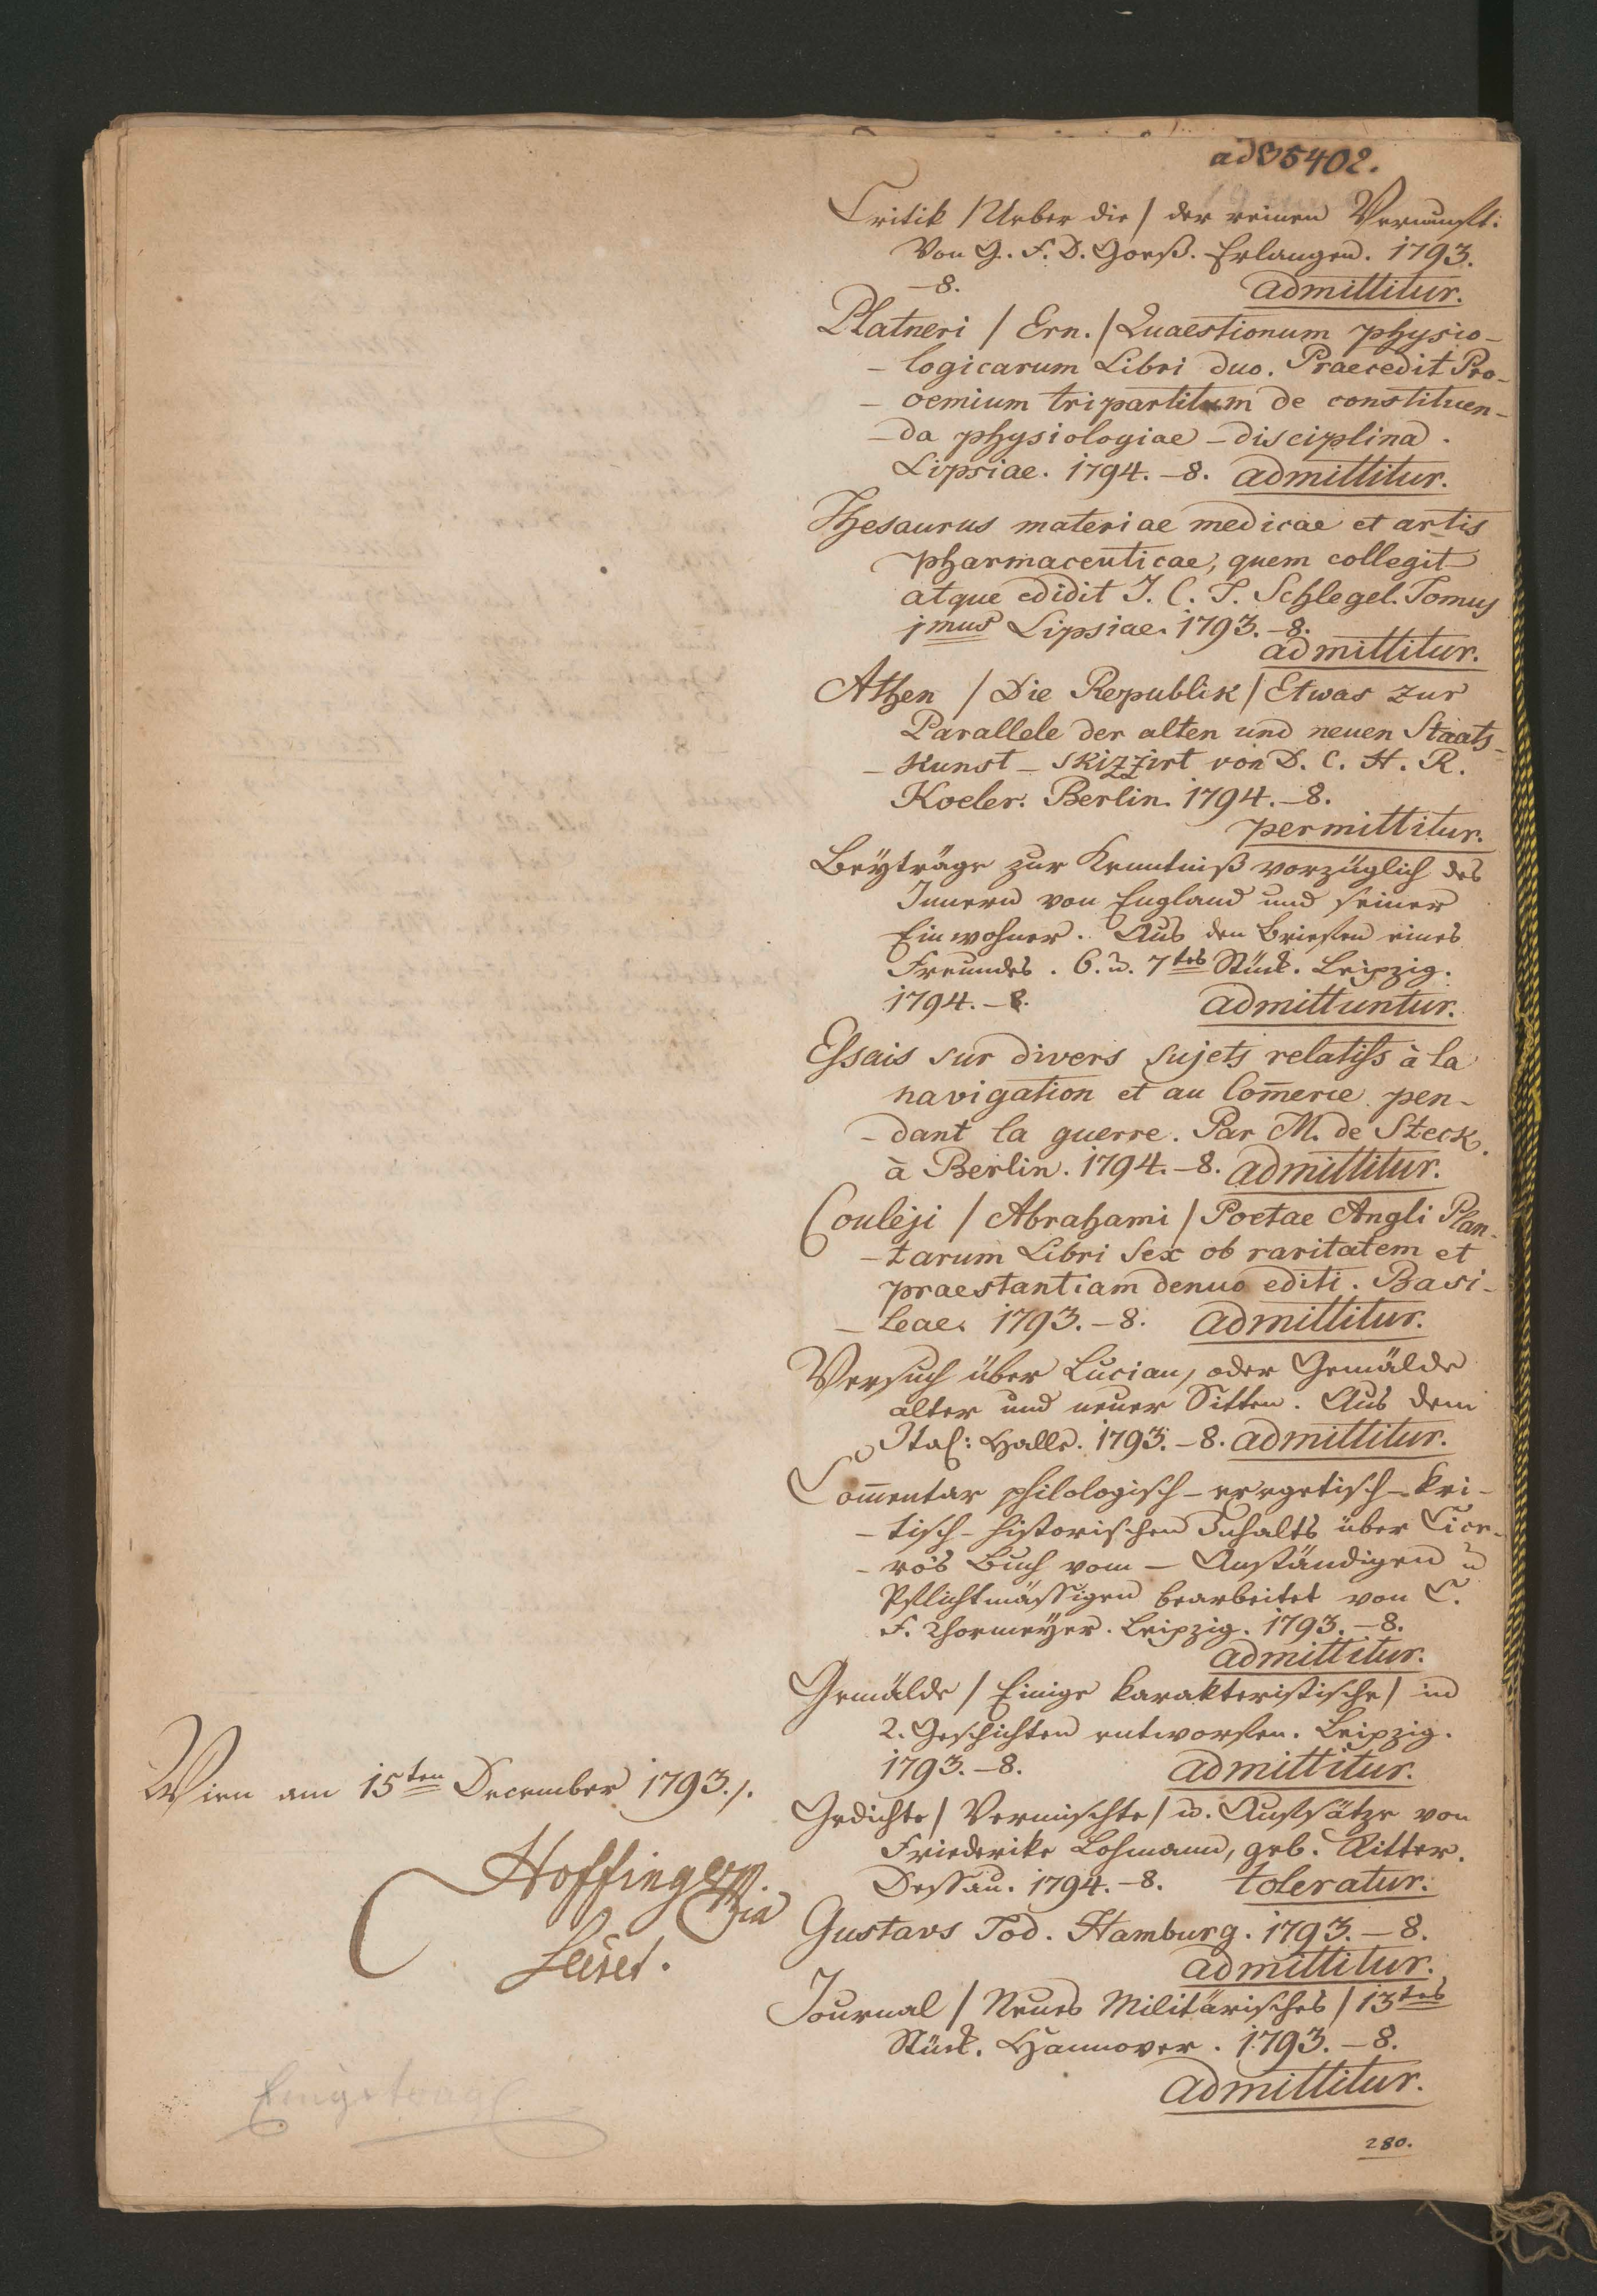 ad 35402.
Critik / Ueber die / der reinen Vernunft:
Von G. F. D. Goeß. Erlangen. 1793.
–8. admittitur.
Platneri / Ern. / Quaestionum physio-
- logicarum Libri duo. Praecedit Pro-
- oemium tripartitum de constituen-
- da physiologiae – disciplina.
Lipsiae. 1794. –8. admittitur.
Thesaurus materiae medicae et artis
pharmaceuticae, quem collegit
atque edidit J. C. T. Schlegel. Tomus
imus Lipsiae. 1793. –8.
admittitur.
Athen / Die Republik / Etwas zur
Parallele der alten und neuen Staats-
- Kunst – skizzirt von D. C. H. R.
Koeler. Berlin. 1794. –8.
permittitur.
Beyträge zur Kenntniß vorzüglich des
Innern von England und seiner
Einwohner. Aus den Briefen eines
Freundes. 6. u. 7tes Stück. Leipzig.
1794. –8. admittuntur.
Essais sur divers sujets relatifs à la
navigation et au Com̅erce pen-
- dant la guerre. Par M. de Steck.
à Berlin. 1794. –8. admittitur.
Couleji / Abrahami / Poetae Angli Plan-
- tarum Libri Sex ob raritatem et
praestantiam denuo editi. Basi-
- leae. 1793. –8. admittitur.
Versuch über Lucian, oder Gemälde
alter und neuer Sitten. Aus dem
Ital: Halle. 1793. –8. admittitur.
Com̅entar philologisch – exegetisch – kri-
- tisch – historischen Inhalts über Cice-
- ro's Buch vom – Anständigen u
Pflichtmässigen bearbeitet von C.
F. Thormeyer. Leipzig. 1793. –8.
admittitur.
Gemälde / Einige karakteristische / in
2. Geschichten entworfen. Leipzig.
1793. –8. admittitur.
Gedichte / Vermischte / u. Aufsätze von
Friederike Lohmann, geb. Ritter.
Dessau. 1794. –8. toleratur.
Gustavs Tod. Hamburg. 1793. –8.
admittitur.
Journal / Neues Militärisches / 13tes
Stück. Hannover. 1793. –8.
admittitur.
280.
Wien am 15ten December 1793./.
Hoffinger